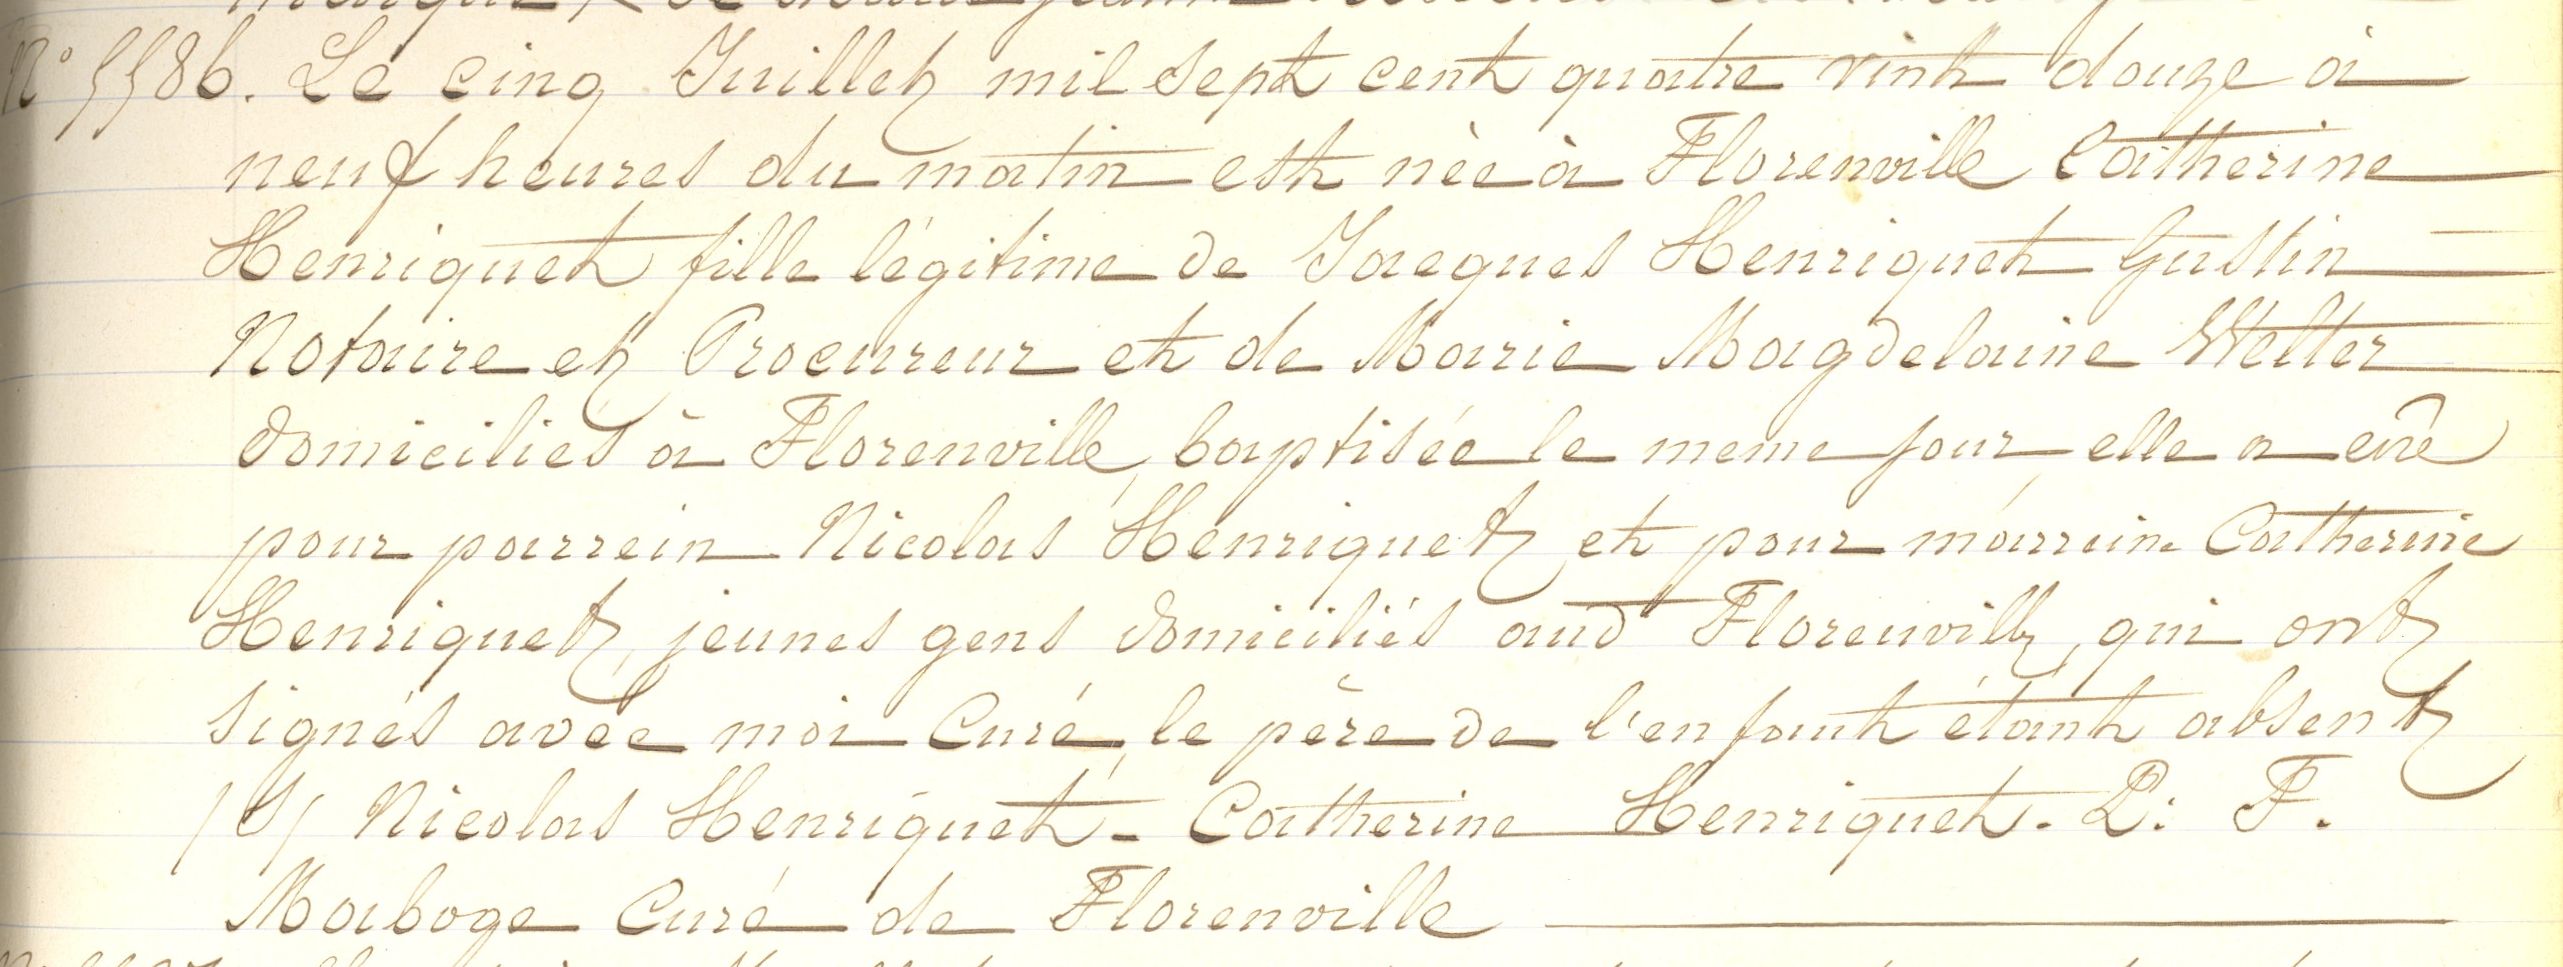 N° 5586. Le cinq Juillet mil sept cent quatre vint douze à
neuf heures du matin est née à Florenville Catherine
Henriquet fille légitime de Jacques Henriquet Gustin
Notaire et Procureur et de Marie Magdelaine Welter
domiciliés à Florenville, baptisée le meme jour elle a eue
pour parrein Nicolas Henriquet et pour marraine Catherine
Henriquet, jeunes gens domiciliés aud Florenville, qui ont
signés avec moi Curé, le père de l'enfant étant absent
/S/ Nicolas Henriquet - Catherine Henriquet. P: F.
Maboge Curé de Florenville